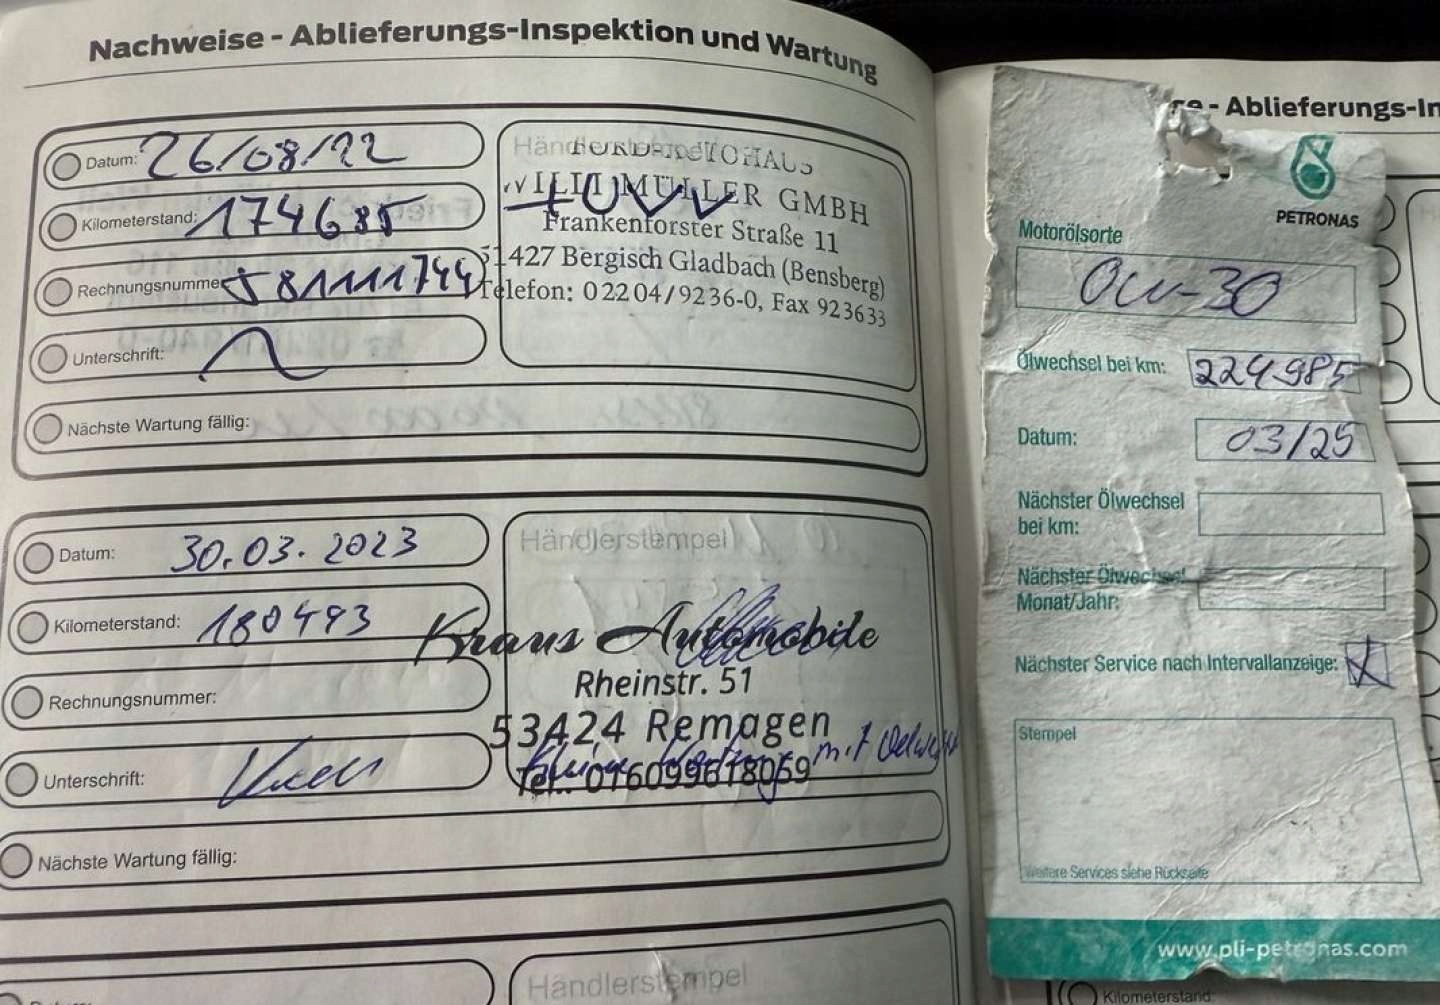 Nachweise - Ablieferungs-Inspektion und Wartung
Datum: 26/08/22
Kilometerstand: 174635
Rechnungsnummer 581111744
Unterschrift:
Nächste Wartung fällig:
Händlerstempel
FORD-AUTOHAUS
WILLI MÜLLER GMBH
Frankenforster Straße 11
51427 Bergisch Gladbach (Bensberg)
Telefon: 02204/9236-0, Fax 923633
Datum: 30.03.2023
Kilometerstand: 180493
Rechnungsnummer:
Unterschrift:
Nächste Wartung fällig:
Händlerstempel
Kraus Automobile
Rheinstr. 51
53424 Remagen
Tel.: 016099618059
mit Oelwechs
Händlerstempel
se - Ablieferungs-In
PETRONAS
Motorölsorte
0W-30
Ölwechsel bei km: 224985
Datum: 03/25
Nächster Ölwechsel
bei km:
Nächster Ölwechsel
Monat/Jahr:
Nächster Service nach Intervallanzeige: X
Stempel
Weitere Services siehe Rückseite
www.pli-petronas.com
Kilometerstand: